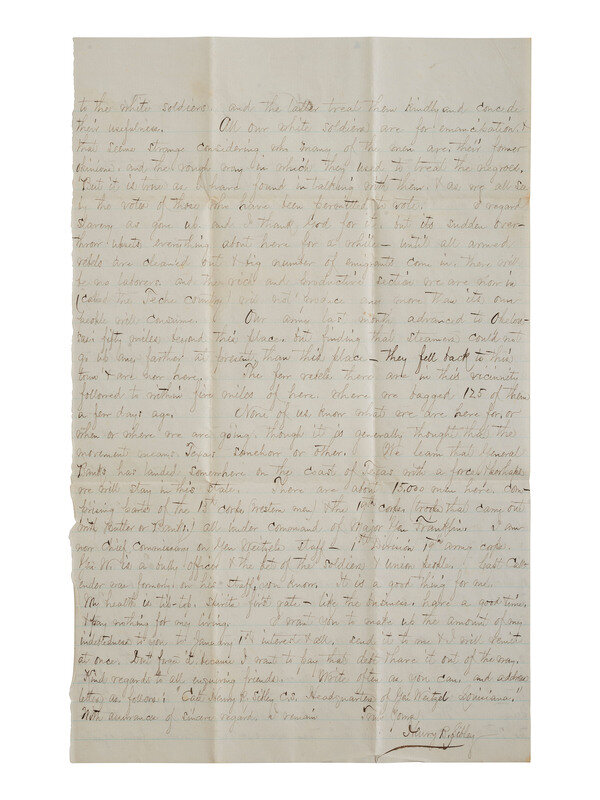 to the white soldiers, and the latter treat them kindly and concede
their usefulness. All our white soldiers are for emancipation &
that seems strange considering who many of the men are, their former
opinions and the rough way in which they used to treat the negroes.
But it is true as I have found in talking with them & as we all see
by the votes of those who have been permitted to vote. I regard
slavery as gone up and I thank God for it, but its sudden over-
throw upsets everything about here for a while - until all armed
rebels are cleaned out & a big number of emigrants come in, there will
be no laborers, and the rich and productive section we are now in
(called the Teche country) will not produce any more than its own
people will consume. Our army last month advanced to Opelou-
sas fifty miles beyond this place, but finding that steamers could not
go up any farther at present, than this place - they fell back to this
town & are now here. The few rebels there are in this vicinity
followed to within five miles of here, where we bagged 125 of them
a few days ago. None of us know what we are here for, or
when or where we are going, though it is generally thought that the
movement means Texas somehow or other. We learn that General
Banks has landed somewhere on the coast of Texas with a force,
we will stay in this State. There are about 15,000 men here, com-
prising parts of the 13th corps, Western men & the 19th corps, (troops that came out
with Butler or Banks) all under command of Major Gen Franklin. I am
now Chief Commissary on Gen Weitzel's staff - 1st Division 19th army corps.
Gen W. is a officer & the pet of the soldiers & union people. Capt
was formerly on his staff, you know. It is a good thing for me.
My health is tip-top, spirits first rate - like the business, have a good time,
& pay nothing for my living. I want you to make up the amount of my
indebtedness to you to January 1st interest & all, send it to me & I will remit
at once. Don't forget it, because I want to pay that debt & have it out of the way.
Kind regards to all enquiring friends. Write often as you can, and address
letter as follows: "Capt Henry R. Sibley C.S. Headquarters of Gen Weitzel Louisiana."
With assurance of sincere regards I remain Truly Yours
Henry R. Sibley